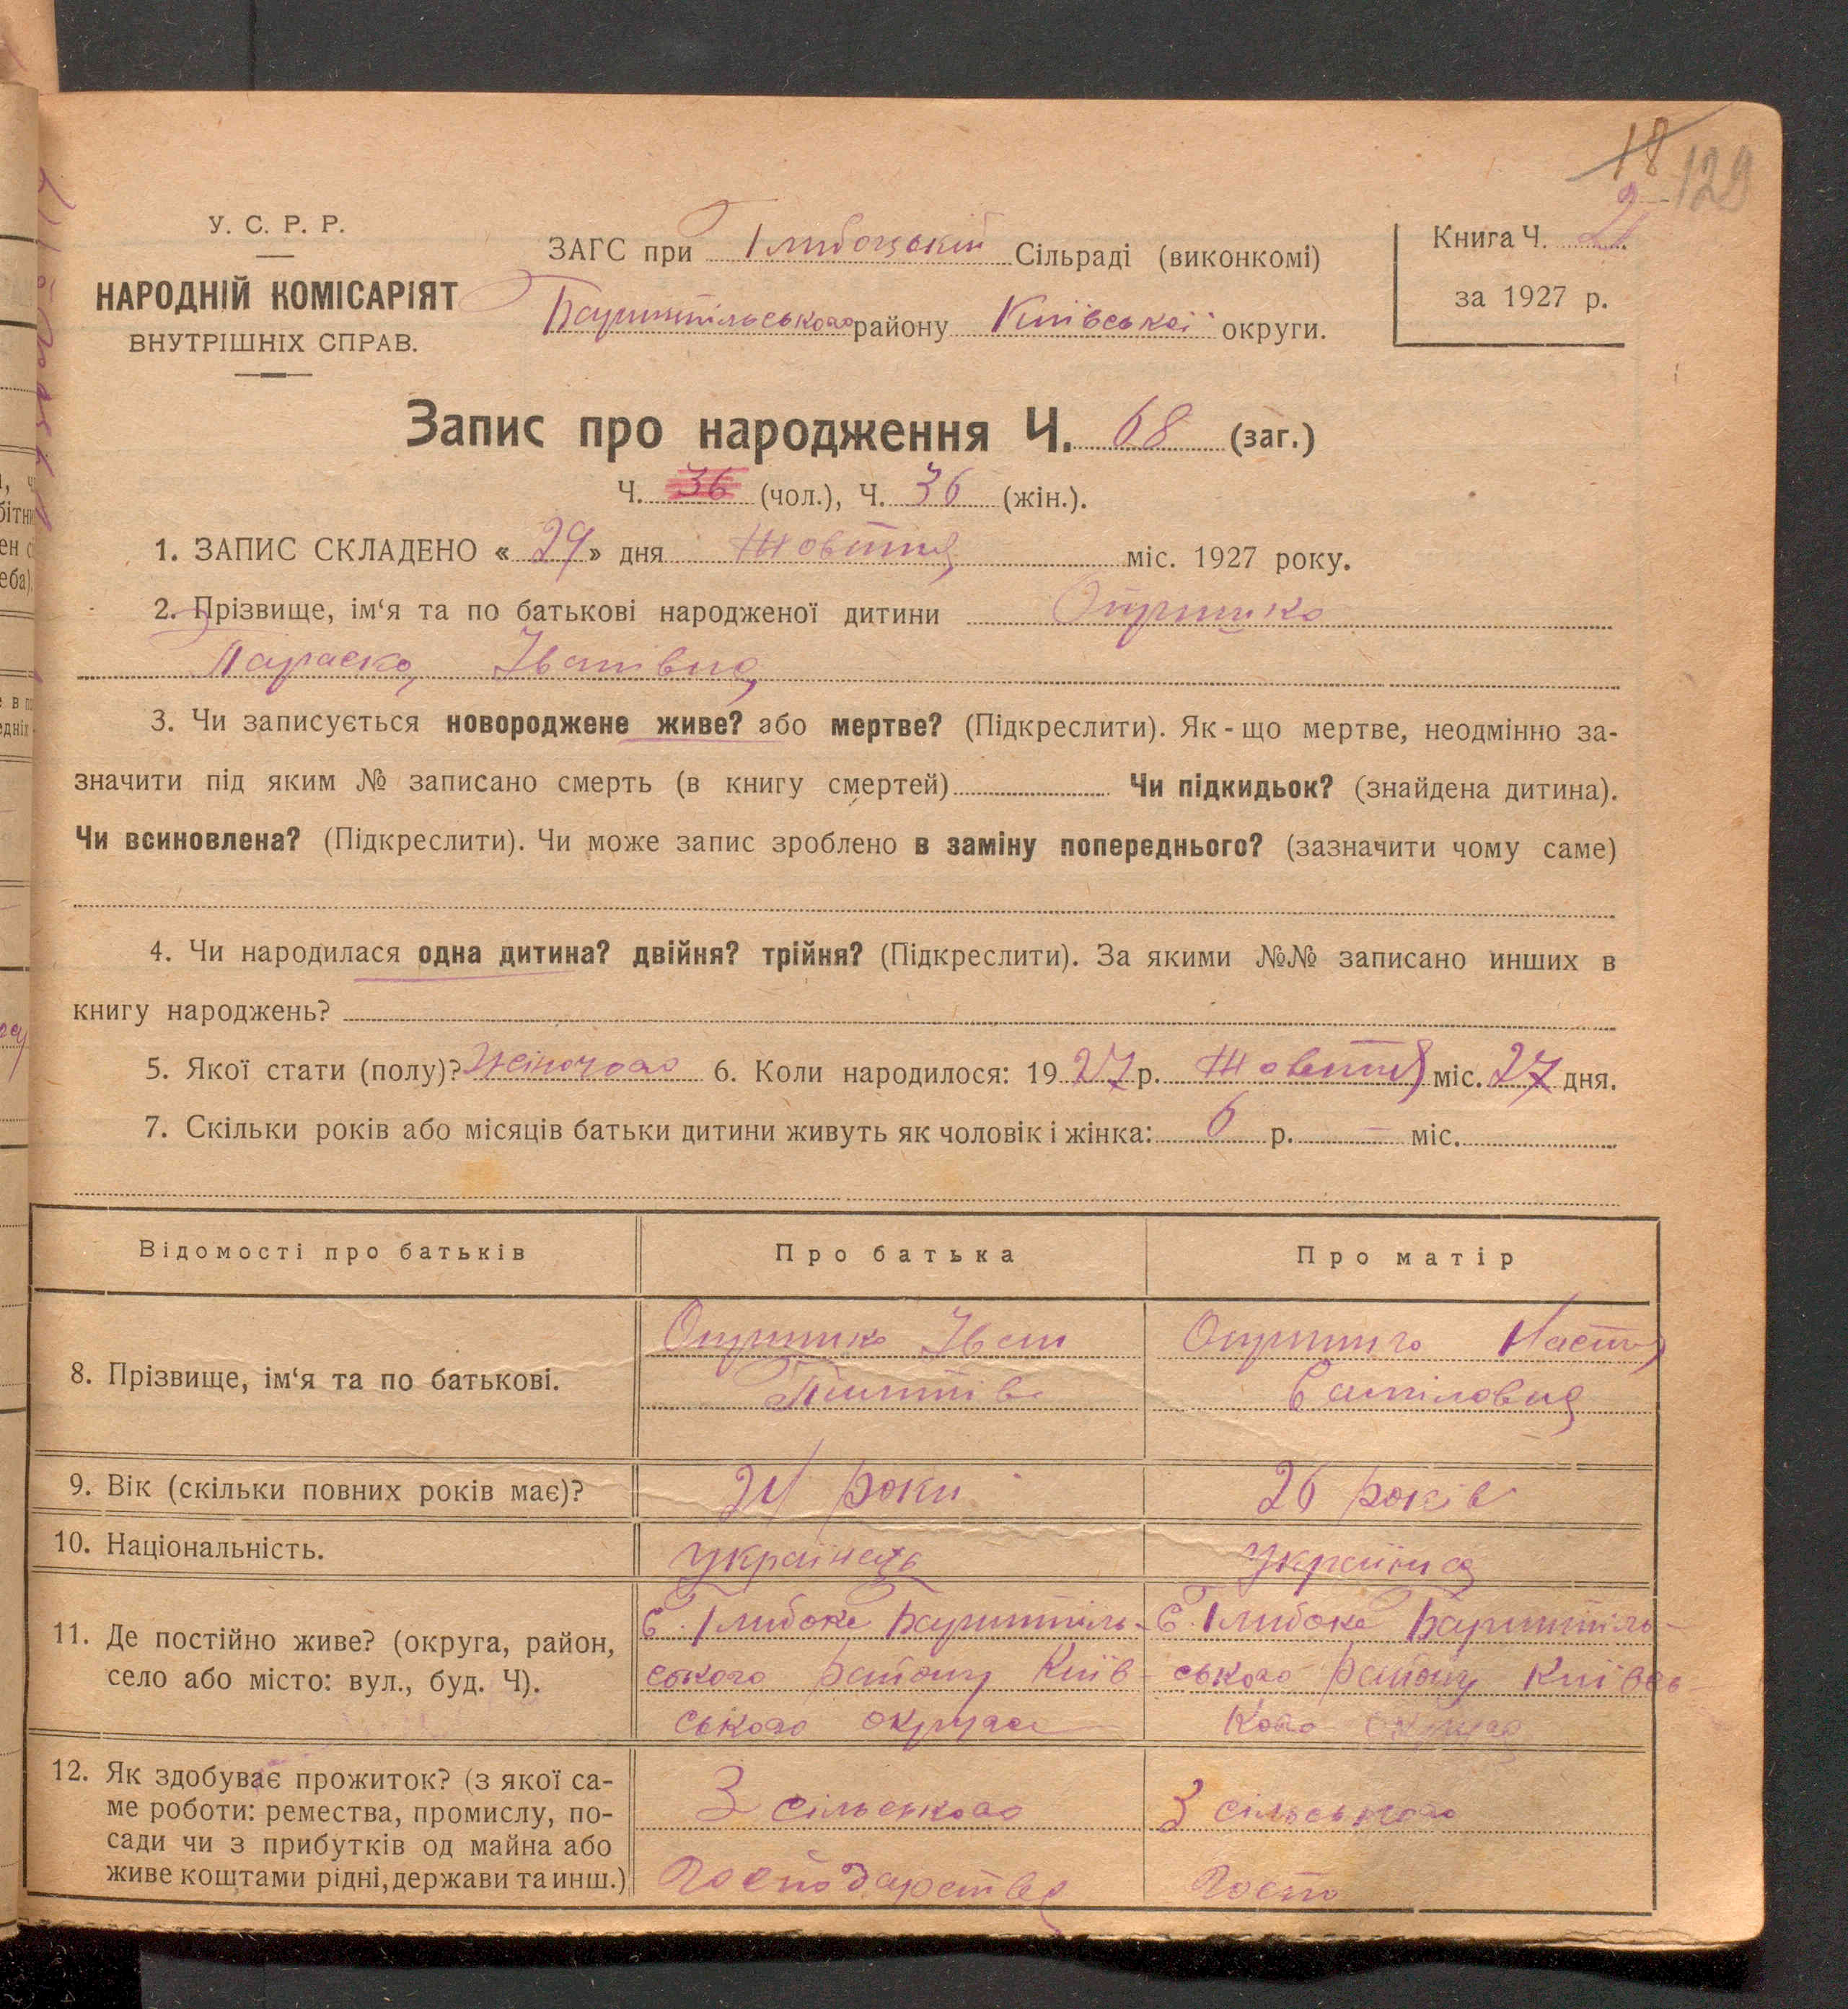 18 129
У. С. Р. Р.
НАРОДНІЙ КОМІСАРІЯТ
ВНУТРІШНІХ СПРАВ.
ЗАГС при Глибоцькій Сільраді (виконкомі)
Баришпільського району Київської округи.
Книга Ч. 2
за 1927 р.
Запис про народження Ч. 68 (заг.)
Ч. 36 (чол.), Ч. 36 (жін.).
1. ЗАПИС СКЛАДЕНО « 29 » дня Жовтня міс. 1927 року.
2. Прізвище, ім‘я та по батькові народженої дитини Опришко
Параска Іванівна
3. Чи записується новороджене живе? або мертве? (Підкреслити). Як - що мертве, неодмінно за-
значити під яким № записано смерть (в книгу смертей) Чи підкидьок? (знайдена дитина).
Чи всиновлена? (Підкреслити). Чи може запис зроблено в заміну попереднього? (зазначити чому саме)
4. Чи народилася одна дитина? двійня? трійня? (Підкреслити). За якими №№ записано инших в
книгу народжень?
5. Якої стати (полу)? Жіночого 6. Коли народилося: 19 27 р. Жовтня міс. 27 дня.
7. Скільки років або місяців батьки дитини живуть як чоловік і жінка: 6 р. — міс.
Відомості про батьків Про батька Про матір
8. Прізвище, ім‘я та по батькові.
Опришко Іван
Опришко Настя
Самііловна
9. Вік (скільки повних років має)? 24 роки 26 років
10. Національність. українець Українка
11. Де постійно живе? (округа, район,
село або місто: вул., буд. Ч).
С. Глибоке Баришпіль-
ського району Київ-
ського округа
С. Глибоке Баришпіль-
ського району Київсь-
кого округа
12. Як здобуває прожиток? (з якої са-
ме роботи: ремества, промислу, по-
сади чи з прибутків од майна або
живе коштами рідні, держави та инш.)
З сільського
Господарства
З сільського
Госпо